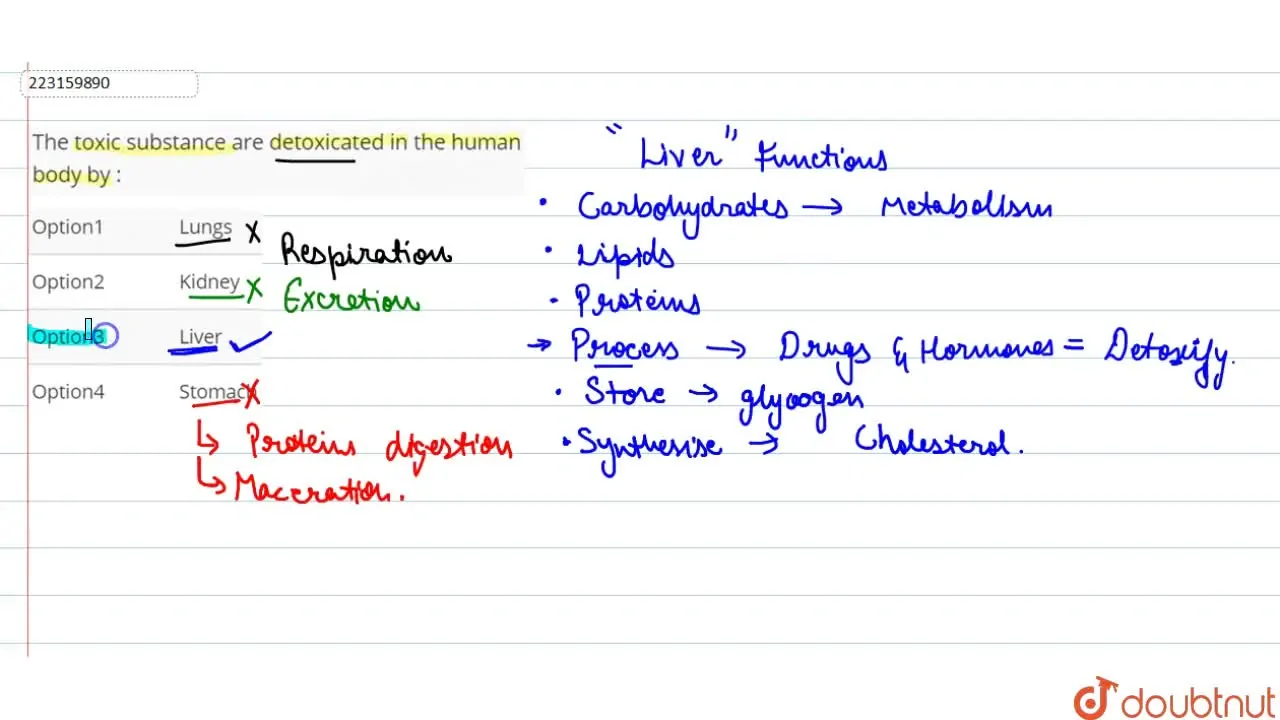 223159890
The toxic substance are detoxicated in the human
body by :
Option1 Lungs x Respiration
Option2 Kidney x Excretion
Option3 Liver ✓
Option4 Stomach x
↳ Proteins digestion
↳ Maceration.
"Liver" Functions
• Carbohydrates → Metabolism
• Lipids
• Proteins
→ Process → Drugs & Hormones = Detoxify.
• Store → glycogen
• Synthesise → Cholesterol.
doubtnut